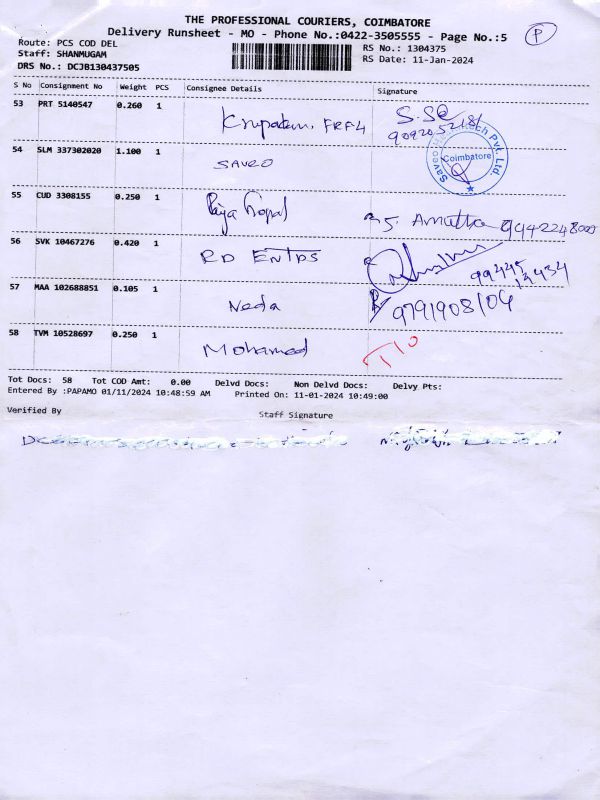 THE PROFESSIONAL COURIERS, COIMBATORE
Delivery Runsheet - MO - Phone No.:0422-3505555 - Page No.:5
P
Route: PCS COD DEL
RS No.: 1304375
Staff: SHANMUGAM
RS Date: 11-Jan-2024
DRS No.: DCJB130437505
S No Consignment No Weight PCS Consignee Details Signature
53 PRT 5140547 0.260 1
54 SLM 337302020 1.100 1 SAVEO
Saveo Pvt. Ltd. Coimbatore
55 CUD 3308155 0.250 1
56 SVK 10467276 0.420 1 RD
57 MAA 102688851 0.105 1 Neda 9791908104
58 TVM 10528697 0.250 1 Mohamed
Tot Docs: 58 Tot COD Amt: 0.00 Delvd Docs: Non Delvd Docs: Delvy Pts:
Entered By :PAPAMO 01/11/2024 10:48:59 AM Printed On: 11-01-2024 10:49:00
Verified By Staff Signature